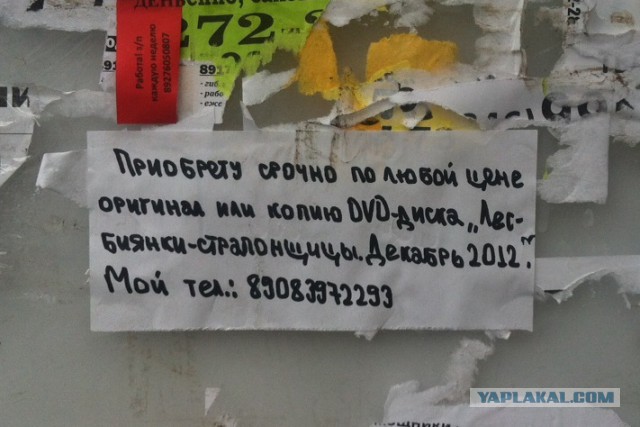 272
Работа! з/п
каждую неделю
89276050807
8917
- гиб
- рабо
- еже
Приобрету срочно по любой цене
оригинал или копию DVD-диска „Лес-
биянки-стралонщицы. Декабрь 2012".
Мой тел.: 89083972293
YAPLAKAL.COM